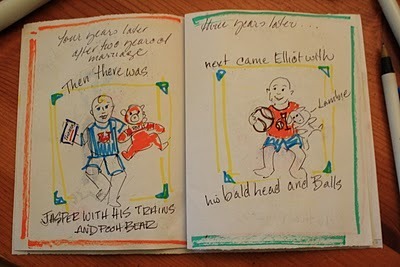 Four years later
after two years of
marriage
Then there was
JASPER WITH HIS TRAINS
AND POOH BEAR
three years later...
next came Elliot with
Lambie
his bald head and Balls